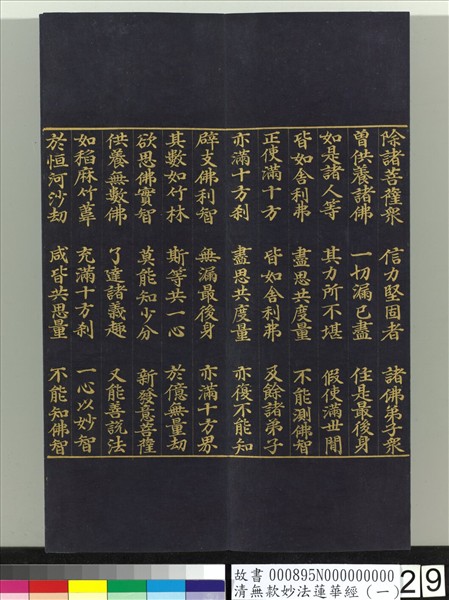 除諸菩薩衆 信力堅固者 諸佛弟子衆
曽供養諸佛 一切漏已盡 住是最後身
如是諸人等 其力所不堪 假使滿世間
皆如舍利弗 盡思共度量 不能測佛智
正使滿十方 皆如舍利弗 及餘諸弟子
亦滿十方刹 盡思共度量 亦復不能知
辟支佛利智 無漏最後身 亦滿十方界
其數如竹林 斯等共一心 於億無量劫
欲思佛實智 莫能知少分 新發意菩薩
供養無數佛 了達諸義趣 又能善說法
如稻麻竹葦 充滿十方刹 一心以妙智
於恒河沙劫 咸皆共思量 不能知佛智
故書 000895N000000000
清無款妙法蓮華經(一)
29